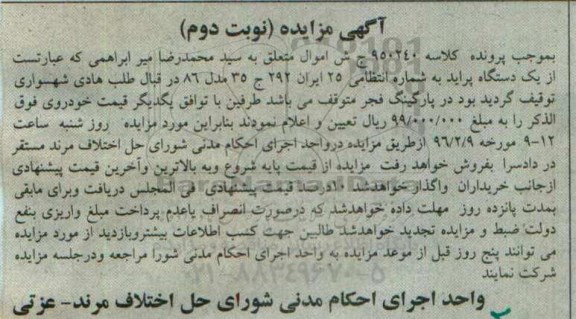 آگهی مزایده (نوبت دوم)
بموجب پرونده کلاسه ۹۵۰۲۴۰ ج ش اموال متعلق به سید محمدرضا میر ابراهمی که عبارتست
از یک دستگاه پراید به شماره انتظامی ۲۵ ایران ۲۹۲ ج ۳۵ مدل ۸۶ در قبال طلب هادی شهسواری
توقیف گردید بود در پارکینگ فجر متوقف می باشد طرفین با توافق یکدیگر قیمت خودروی فوق
الذکر را به مبلغ ۹۹/۰۰۰/۰۰۰ ریال تعیین و اعلام نمودند بنابراین مورد مزایده روز شنبه ساعت
۹-۱۲ مورخه ۹۶/۲/۹ ازطریق مزایده درواحد اجرای احکام مدنی شورای حل اختلاف مرند مستقر
در دادسرا بفروش خواهد رفت مزایده از قیمت پایه شروع وبه بالاترین وآخرین قیمت پیشنهادی
ازجانب خریداران واگذار خواهدشد ۱۰درصد قیمت پیشنهادی فی المجلس دریافت وبرای مابقی
بمدت پانزده روز مهلت داده خواهدشد که درصورت انصراف یاعدم پرداخت مبلغ واریزی بنفع
دولت ضبط و مزایده تجدید خواهدشد طالبین جهت کسب اطلاعات بیشتروبازدید از مورد مزایده
می توانند پنج روز قبل از موعد مزایده به واحد اجرای احکام مدنی شورا مراجعه ودرجلسه مزایده
شرکت نمایند
واحد اجرای احکام مدنی شورای حل اختلاف مرند- عزتی